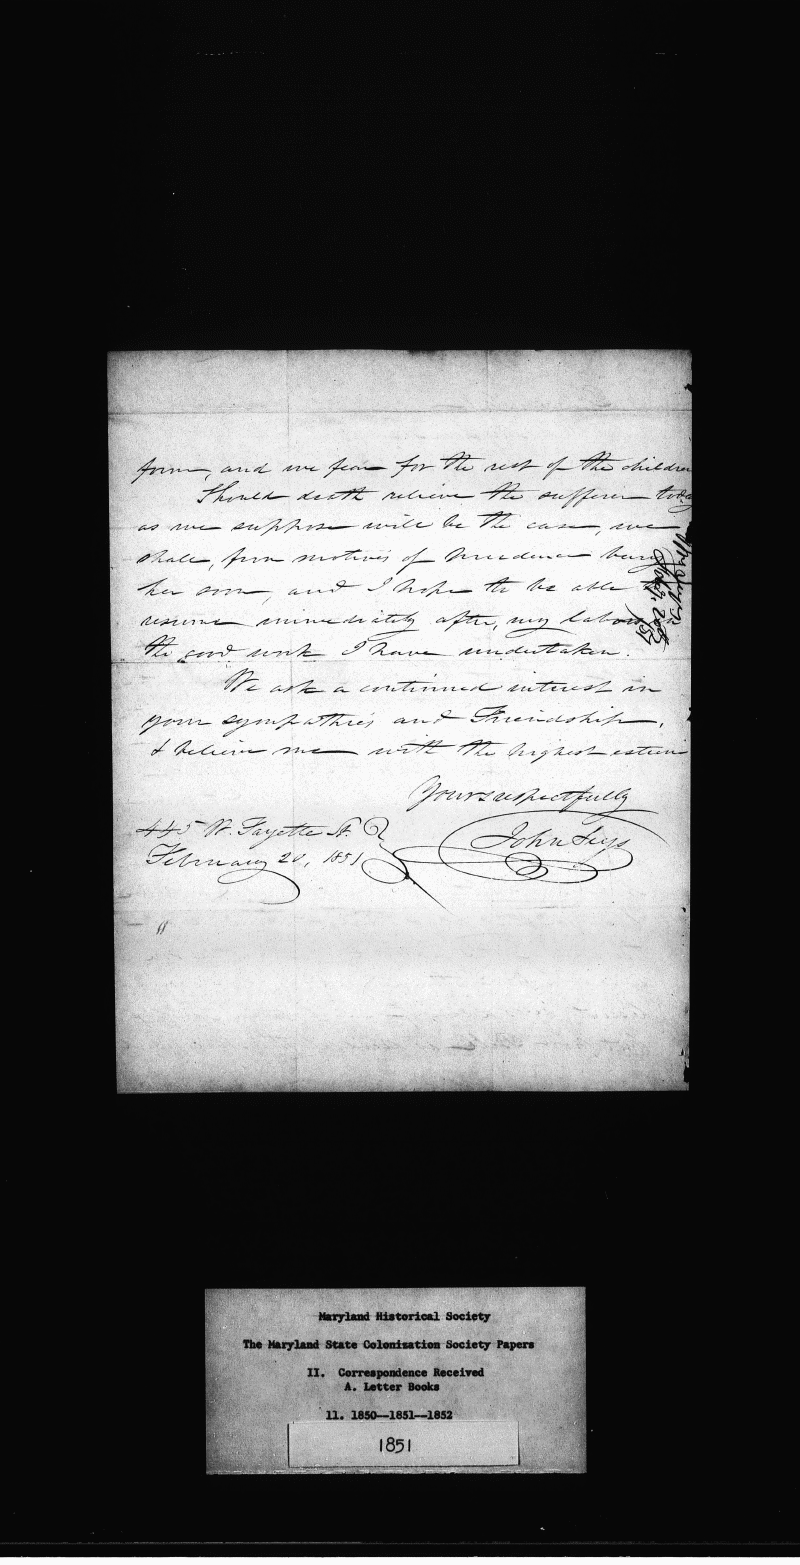 form, and we fear for the rest of the children
Should death relieve the sufferer today
as we suppose will be the case, we
shall, from motives of prudence bury
her soon, and I hope to be able
resume immediately after, my labours in
the good work I have undertaken.
We ask a continued interest in
your sympathies and Friendship,
& believe me with the highest esteem
Yours respectfully
John Seys
445 W. Fayette St.
February 20, 1851
Maryland Historical Society
The Maryland State Colonization Society Papers
II. Correspondence Received
A. Letter Books
11. 1850--1851--1852
1851